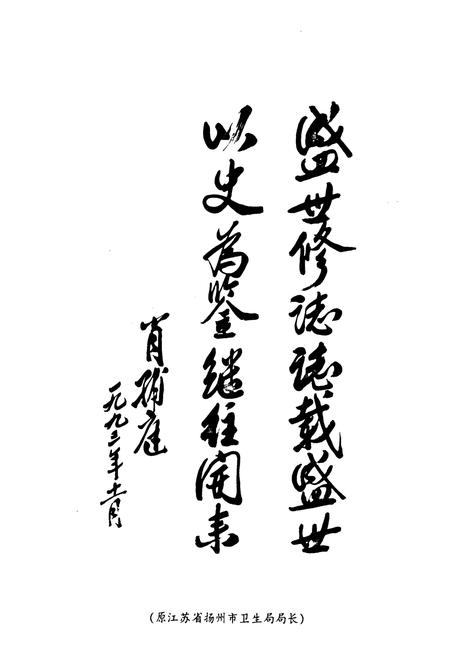 盛世修誌誌載盛世
以史为鉴继往开来
肖辅庭
一九九三年十一月
(原江苏省扬州市卫生局局长)